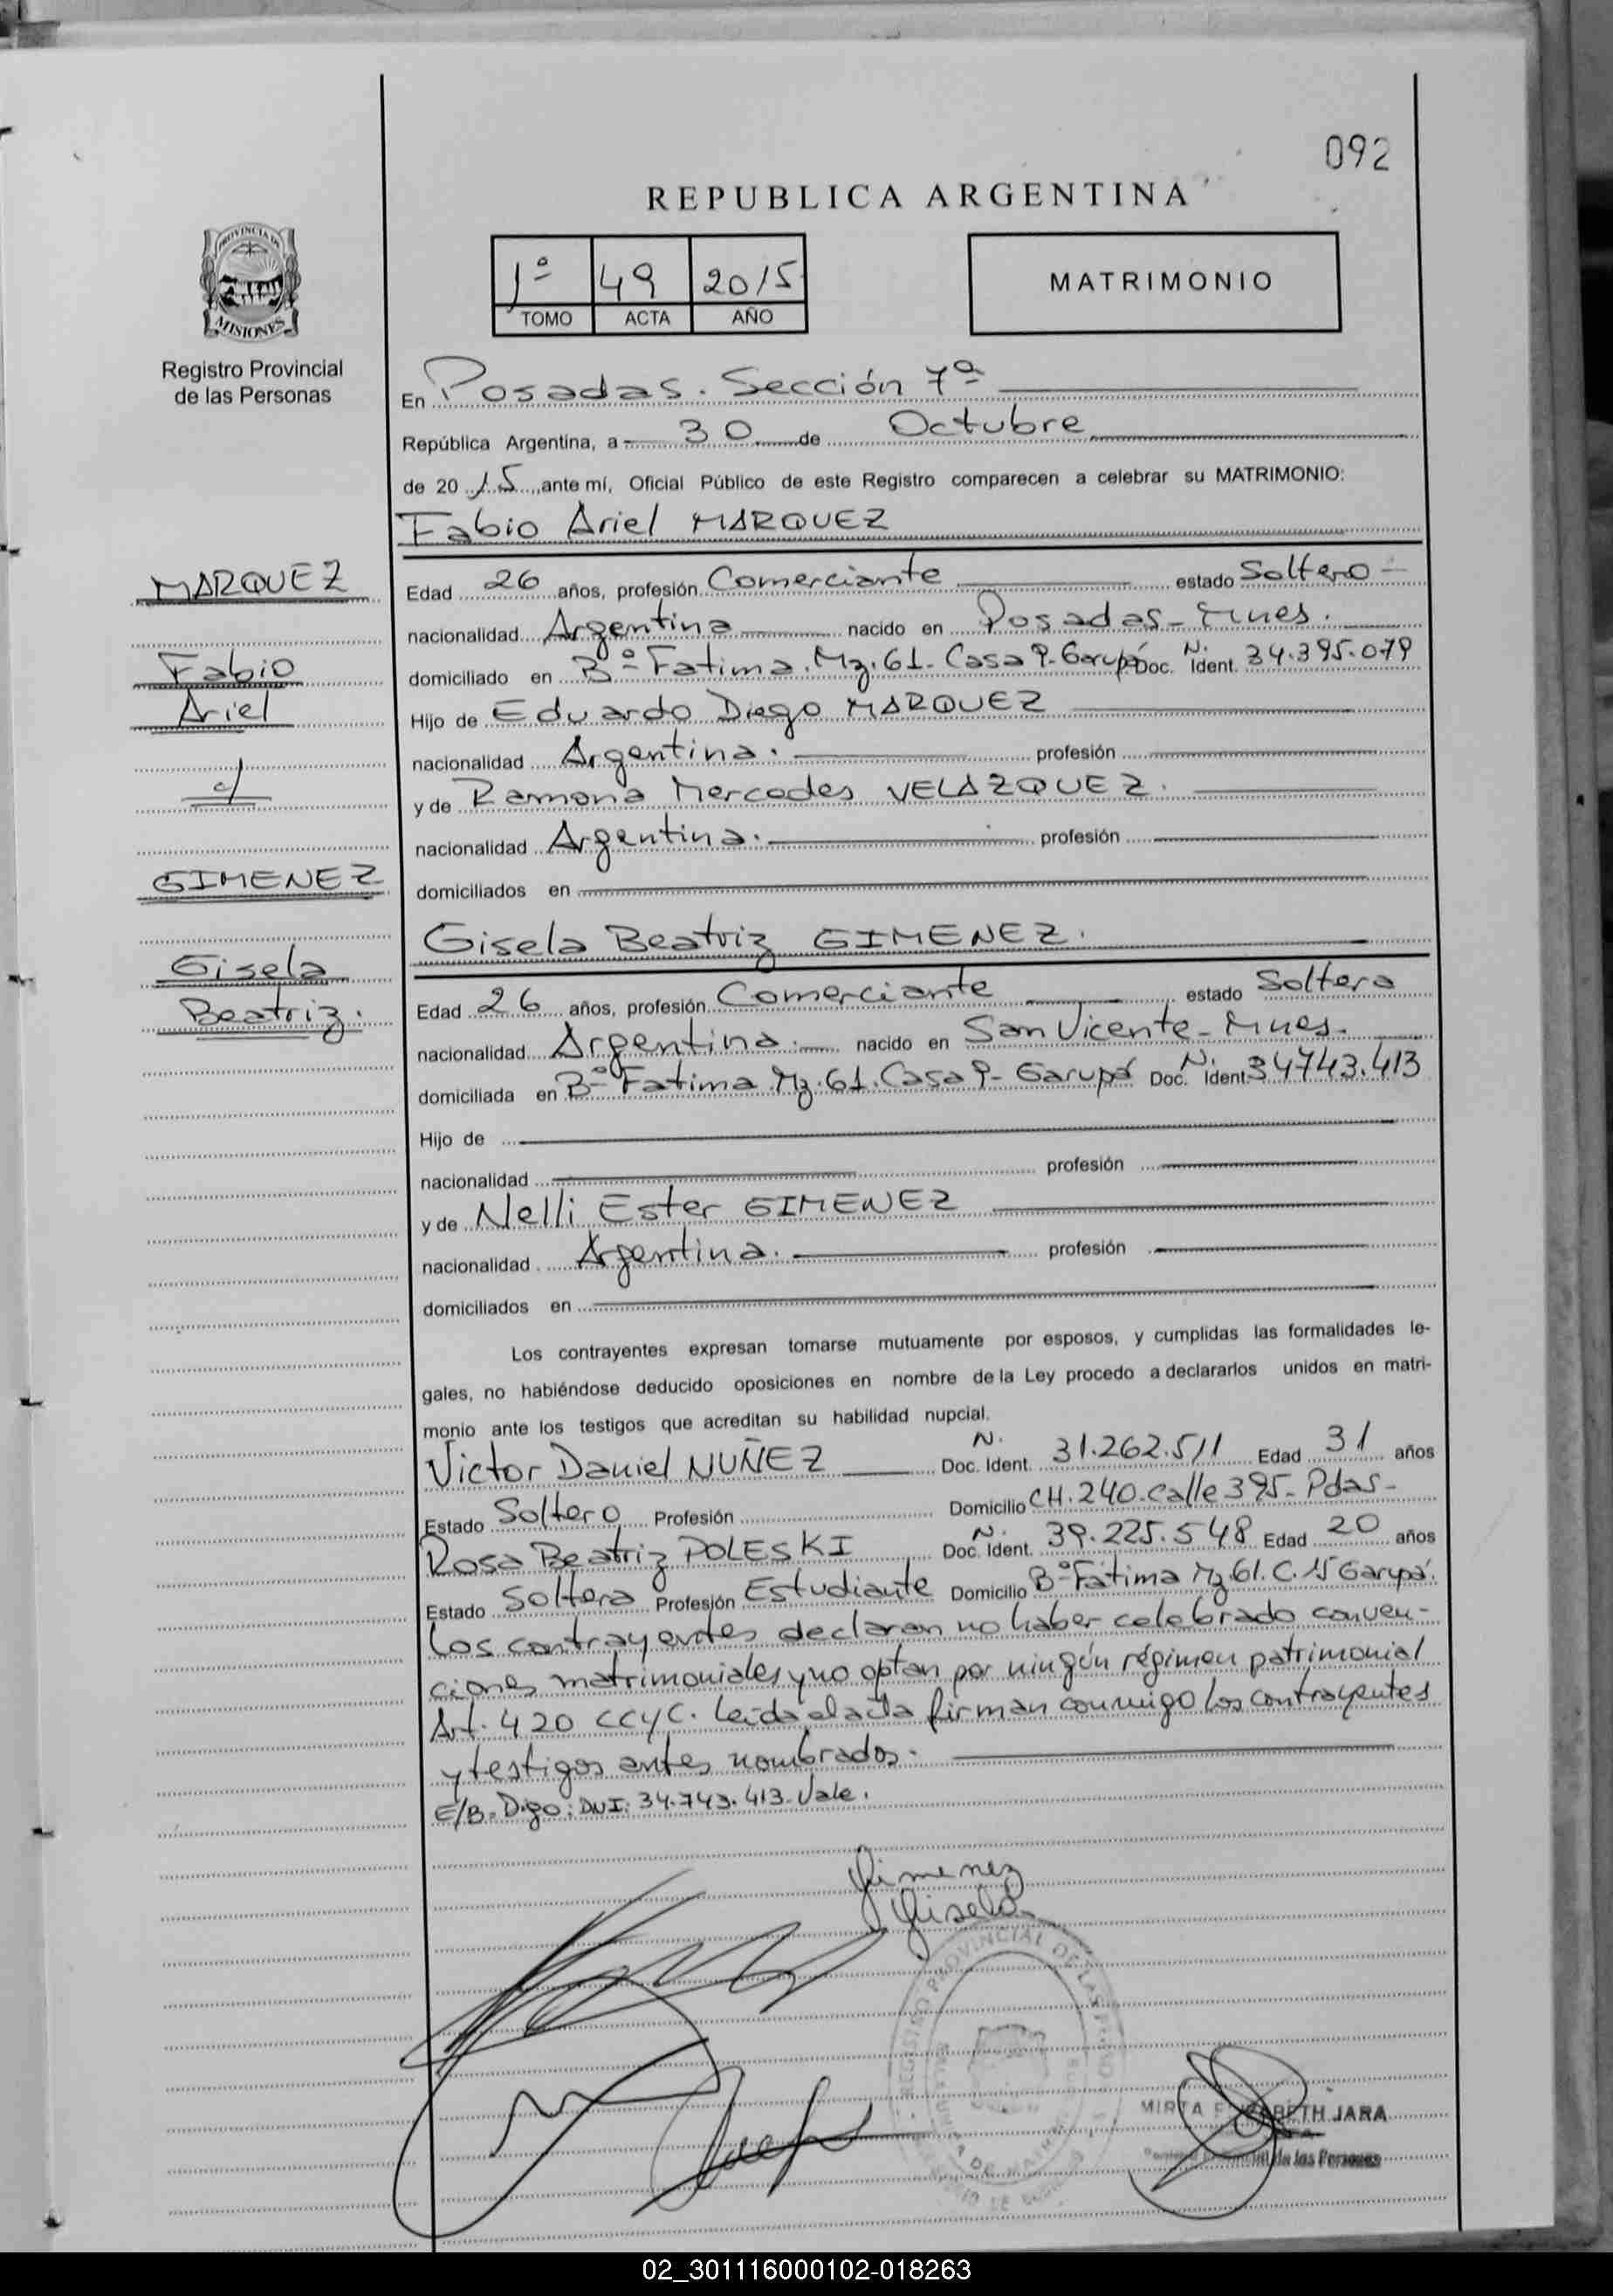 092
REPUBLICA ARGENTINA
PROVINCIA DE
MISIONES
Registro Provincial
de las Personas
1º 49 2015
TOMO ACTA AÑO
MATRIMONIO
En Posadas. Sección 7ª
República Argentina, a 30 de Octubre
de 2015, ante mí, Oficial Público de este Registro comparecen a celebrar su MATRIMONIO:
Fabio Ariel MARQUEZ
MARQUEZ
Fabio
Ariel
c/
GIMENEZ
Gisela
Beatriz.
Edad 26 años, profesión Comerciante estado Soltero
nacionalidad Argentina nacido en Posadas - Mnes.
domiciliado en Bº Fatima. Mz. 61 - Casa 9 - Garupá Doc. N. Ident. 34.395.079
Hijo de Eduardo Diego MARQUEZ
nacionalidad Argentina. profesión
y de Ramona Mercedes VELAZQUEZ.
nacionalidad Argentina. profesión
domiciliados en
Gisela Beatriz GIMENEZ.
Edad 26 años, profesión Comerciante estado Soltera
nacionalidad Argentina. nacido en San Vicente - Mnes.
domiciliada en Bº Fatima. Mz. 61. Casa 9 - Garupá Doc. N. Ident. 34743.413
Hijo de
nacionalidad profesión
y de Nelli Ester GIMENEZ
nacionalidad Argentina. profesión
domiciliados en
Los contrayentes expresan tomarse mutuamente por esposos, y cumplidas las formalidades le-
gales, no habiéndose deducido oposiciones en nombre de la Ley procedo a declararlos unidos en matri-
monio ante los testigos que acreditan su habilidad nupcial.
Victor Daniel NUÑEZ Doc. N. Ident. 31.262.511 Edad 31 años
Estado Soltero Profesión Domicilio CH. 240. Calle 395 - Pdas -
Rosa Beatriz POLESKI Doc. N. Ident. 39.225.548 Edad 20 años
Estado Soltera Profesión Estudiante Domicilio Bº Fátima Mz 61. C. 15 Garupá.
Los contrayentes declaran no haber celebrado conven-
ciones matrimoniales y no optan por ningún régimen patrimonial
Art. 420 CCyC. Leida el acta firman conmigo los contrayentes
y testigos antes nombrados.
E/B. Digo: DNI: 34.743.413. Vale.
Gimenez
Gisela
REGISTRO PROVINCIAL DE LAS PERSONAS
MIRTA ELIZABETH JARA
de las Personas
02_301116000102-018263